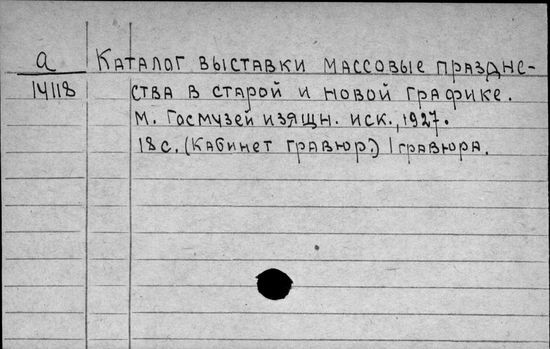 а
14118
Каталог выставки массовые праздне-
ства в старой и новой графике.
М. Госмузей изящн. иск., 1927.
18 с. (Кабинет гравюр.) 1 гравюра.